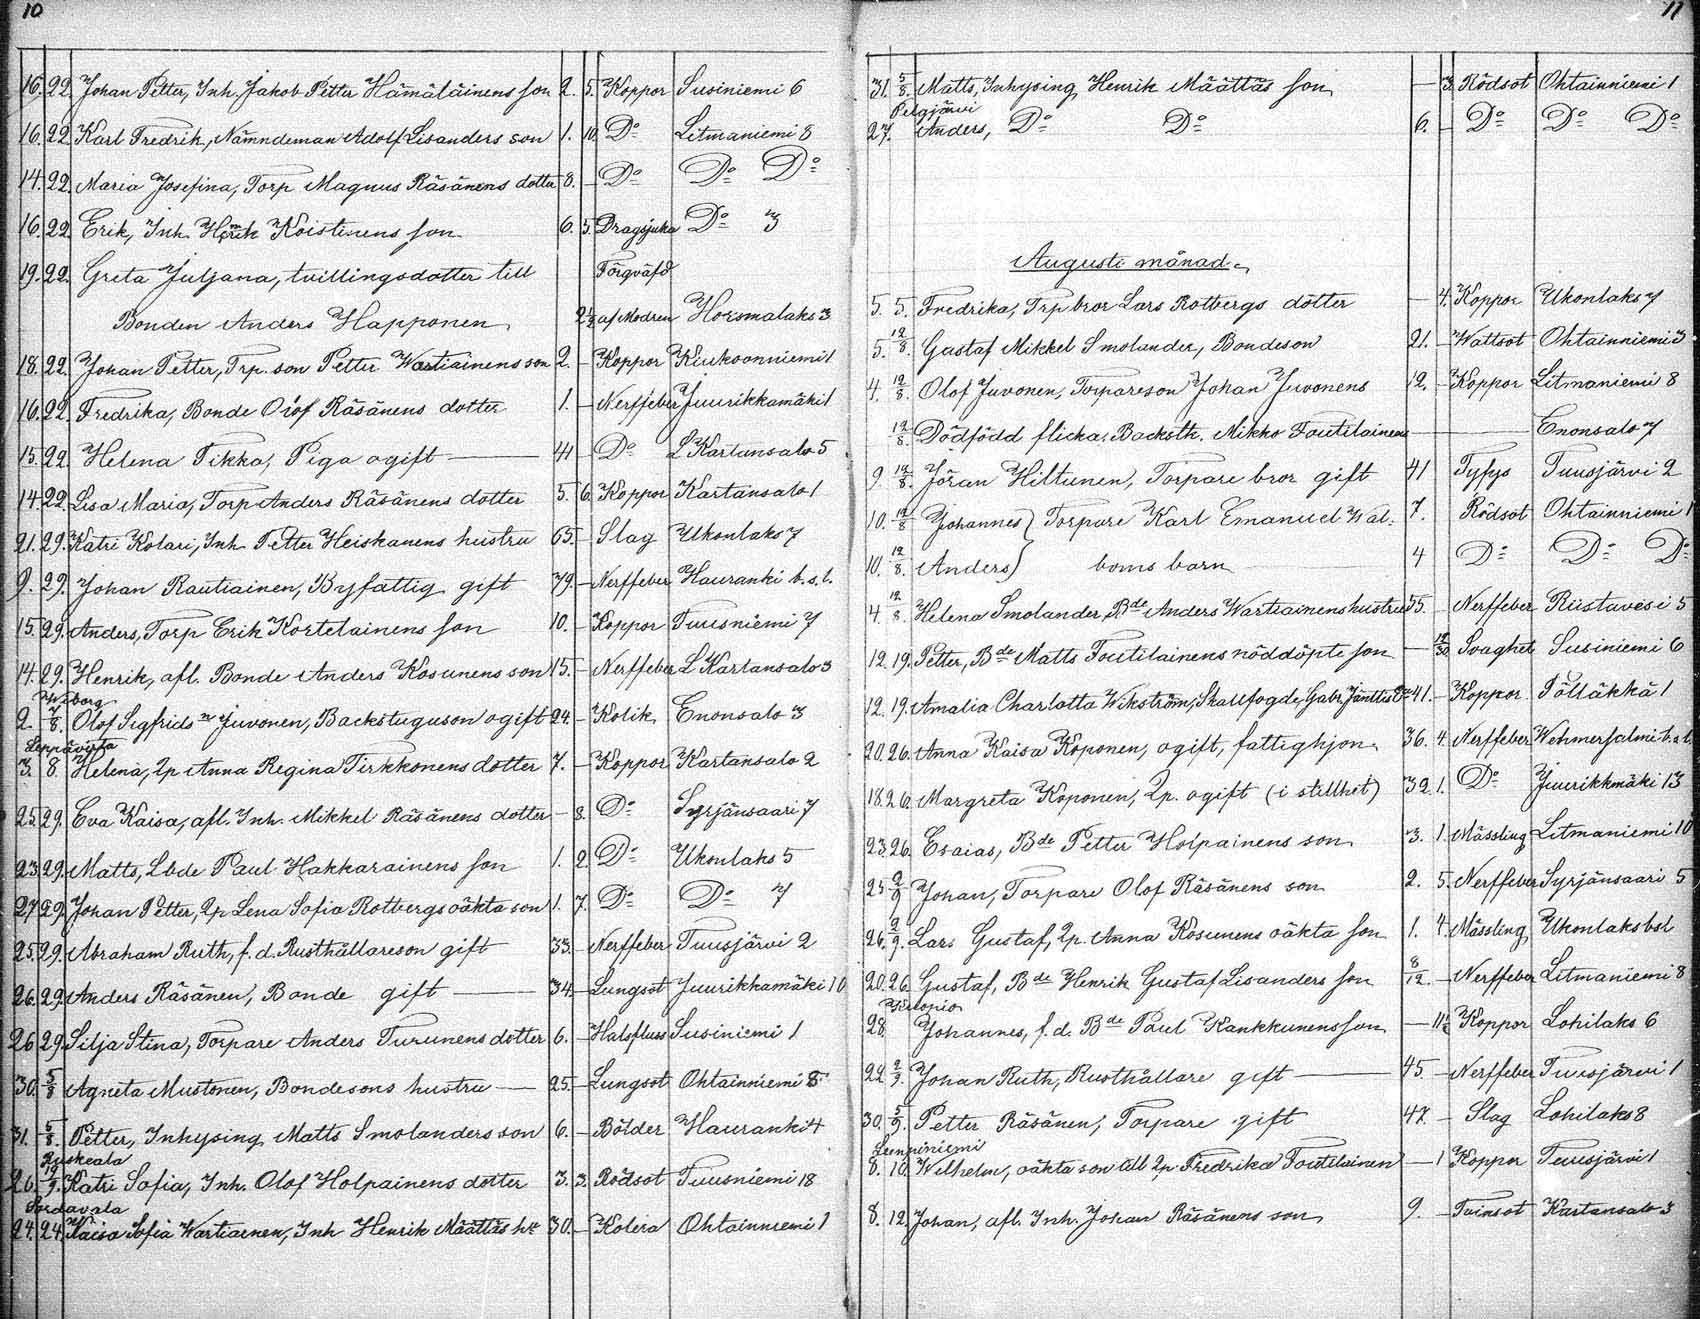 10
16. 22. Johan Petter, Inh. Jakob Petter Hämäläinens son 2. 5. Koppor Susiniemi 6
16. 22. Karl Fredrik, Nämndeman Adolf Lisanders son 1. 10. Do Litmaniemi 8
14. 22. Maria Josefina, Torp Magnus Räsänens dotter 8. – Do Do Do
16. 22. Erik, Inh. Henrik Koistinens son 6. 5. Dragsjuka Do 3
19. 22. Greta Juljana, tvillingsdotter till Förqväfd
Bonden Anders Happonen 2½ af Modren Hoesmalaks 3
18. 22. Johan Petter, Trp. son Petter Wartiainens son 2. – Koppor Kiukoonniemi 1
16. 22. Fredrika, Bonde Olof Räsänens dotter 1. – Nerffeber Juurikkamäki 1
15. 22. Helena Tikka, Piga ogift — 41 – Do L Kartansalo 5
14. 22. Lisa Maria, Torp Anders Räsänens dotter 5. 6. Koppor Kartansalo 1
21. 29. Katri Kolari, Inh. Petter Heiskanens hustru 65. – Slag Ukonlaks 7
9. 29. Johan Rautiainen, Byfattig gift 79. – Nerffeber Hauranki b.s.l.
15. 29. Anders, Torp Erik Kortelainens son 10. – Koppor Tuusniemi 7
14. 29. Henrik, afl. Bonde Anders Kosunens son 15. – Nerffeber L Kartansalo 3
Wiborg
2. 7/8. Olof Sigfridsn Juvonen, Backstuguson ogift 24. – Kolik Enonsalo 3
Leppävirta
3. 8. Helena, Qp Anna Regina Tirkkonens dotter 7. – Koppor Kartansalo 2
25. 29. Eva Kaisa, afl. Inh. Mikkel Räsänens dotter – 8. Do Syrjänsaari 7
23. 29. Matts, Lbde Paul Hakkarainens son 1. 2. Do Ukonlaks 5
27. 29. Johan Petter, Qp Lena Sofia Rotbergs oäkta son 1. 7. Do Do 7
25. 29. Abraham Ruth, f.d. Rusthållareson gift 33. – Nerffeber Tuusjärvi 2
26. 29. Anders Räsänen, Bonde gift — 34. – Lungsot Juurikkamäki 10
26 29. Silja Stina, Torpare Anders Turunens dotter 6. – Halsfluss Susiniemi 1
30. 5/8 Agneta Mustonen, Bondesons hustru — 25. – Lungsot Ohtainniemi 8
31. 5/8. Petter, Inhysing Matts Smolanders son 6. – Bölder Hauranki 4
Ruskeala
26. 19/9. Katri Sofia, Inh. Olof Holpainens dotter 3. 3. Rödsot Tuusniemi 18
Sordavala
24. 24. Kaisa Sofia Wartiainen, Inh Henrik Määttäs hu 30. – Kolera Ohtainniemi 1
11
31. 5/8. Matts, Inhysing Henrik Määttäs son — 3. Rödsot Ohtainniemi 1
Pelgjärvi
27. Anders, Do Do 6. – Do Do Do
Augusti månad.
5. 5. Fredrika, Trp bror Lars Rotbergs dotter — 4. Koppor Ukonlaks 7
5. 12/8. Gustaf Mikkel Smolander, Bondeson 21. – Wattsot Ohtainniemi 3
4. 12/8. Olof Juvonen, Torpareson Johan Juvonens 12. – Koppor Litmaniemi 8
12/8. Dödfödd flicka, Backsth. Mikko Toutilainens — Enonsalo 7
9. 12/8. Jöran Hiltunen, Torpare bror gift 41 Tyfys Tuusjärvi 2
10. 12/8 Johannes } Torpare Karl Emanuel Wal- 7. Rödsot Ohtainniemi 1
10. 12/8. Anders } boms barn — 4 Do Do Do
4. 12/8. Helena Smolander, Bde Anders Wartiainens hustru 55. – Nerffeber Riistavesi 5
12. 19. Petter, Bde Matts Toutilainens nöddöpte son — 12/30 Svaghet Susiniemi 6
12. 19. Amalia Charlotta Wikström, Skallfogde Gabr. Jänttis 41. – Koppor Pölläkkä 1
20. 26. Anna Kaisa Koponen, ogift, fattighjon 36. 4. Nerffeber Wehmersalmi b.s.l.
18. 26. Margreta Koponen, Qp. ogift (i stillhet) 32. 1. Do Juurikkmäki 13
23. 26. Esaias, Bde Petter Holpainens son 3. 1. Mässling Litmaniemi 10
25 2/9 Johan, Torpare Olof Räsänens son 2. 5. Nerffeber Syrjänsaari 5
26. 2/9. Lars Gustaf, Qp. Anna Kosunens oäkta son 1. 4. Mässling Ukonlaks bsl
20. 26. Gustaf, Bde Henrik Gustaf Lisanders son 8/12. – Nerffeber Litmaniemi 8
Kuopio
28. Johannes, f.d. Bde Paul Kankkunens son — 11½ Koppor Lohilaks 6
22. 2/9. Johan Ruth, Rusthållare gift — 45. – Nerffeber Tuusjärvi 1
30. 5/9. Petter Räsänen, Torpare gift 47. – Slag Lohilaks 8
Lempiniemi
8. 10. Wilhelm, oäkta son till Qp Fredrika Toutilainen — 1 Koppor Tuusjärvi 1
8. 12. Johan, afl. Inh. Johan Räsänens son 9. – Tvinsot Kartansalo 3